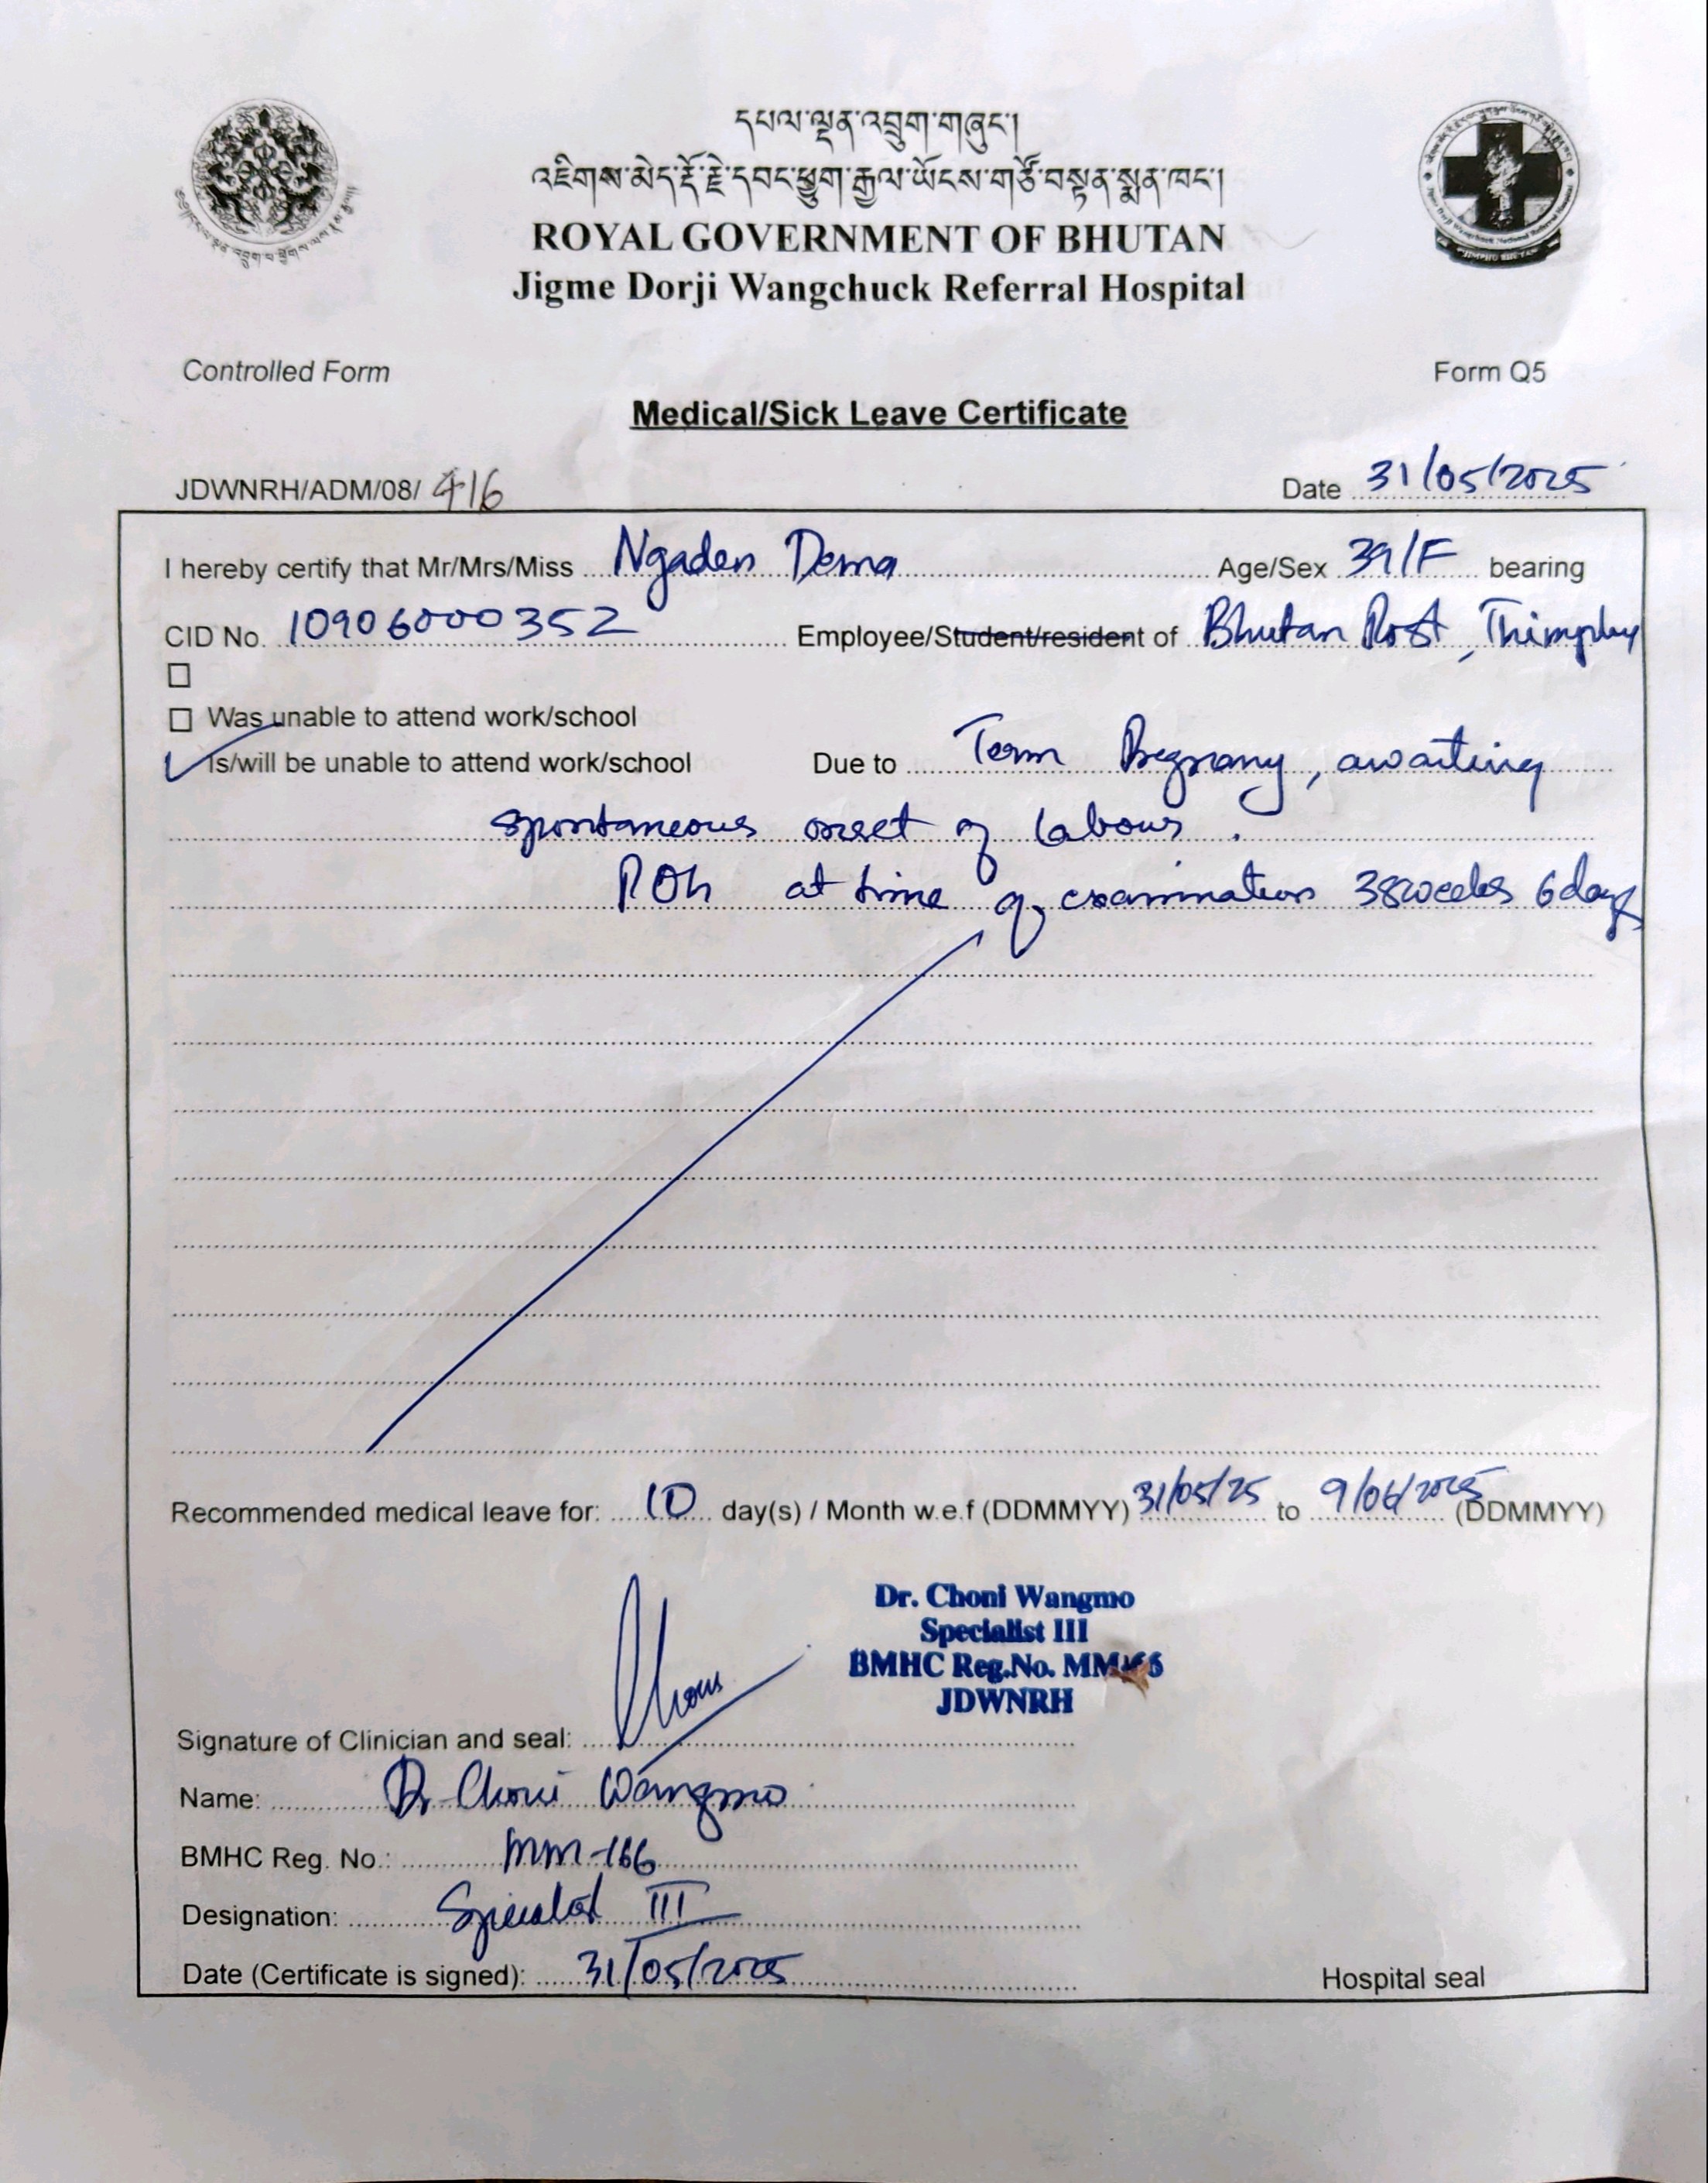 དཔལ་ལྡན་འབྲུག་གཞུང་།
འཇིགས་མེད་རྡོ་རྗེ་དབང་ཕྱུག་རྒྱལ་ཡོངས་གཙོ་བསྟེན་སྨན་ཁང་།
ROYAL GOVERNMENT OF BHUTAN
Jigme Dorji Wangchuck Referral Hospital
Controlled Form Form Q5
Medical/Sick Leave Certificate
JDWNRH/ADM/08/ 416 Date 31/05/2025
I hereby certify that Mr/Mrs/Miss Ngaden Dema Age/Sex 39/F bearing
CID No. 10906000352 Employee/Student/resident of Bhutan Post, Thimphu
Was unable to attend work/school
Is/will be unable to attend work/school Due to Term Pregnancy, awaiting
spontaneous onset of labour.
POG at time of examination 38weeks 6days
Recommended medical leave for: 10 day(s) / Month w.e.f (DDMMYY) 31/05/25 to 9/06/2025 (DDMMYY)
Dr. Choni Wangmo
Specialist III
BMHC Reg.No.
JDWNRH
Signature of Clinician and seal:
Name: Dr Choni Wangmo
BMHC Reg. No.: MM-166
Designation: Specialist III
Date (Certificate is signed): 31/05/2025 Hospital seal